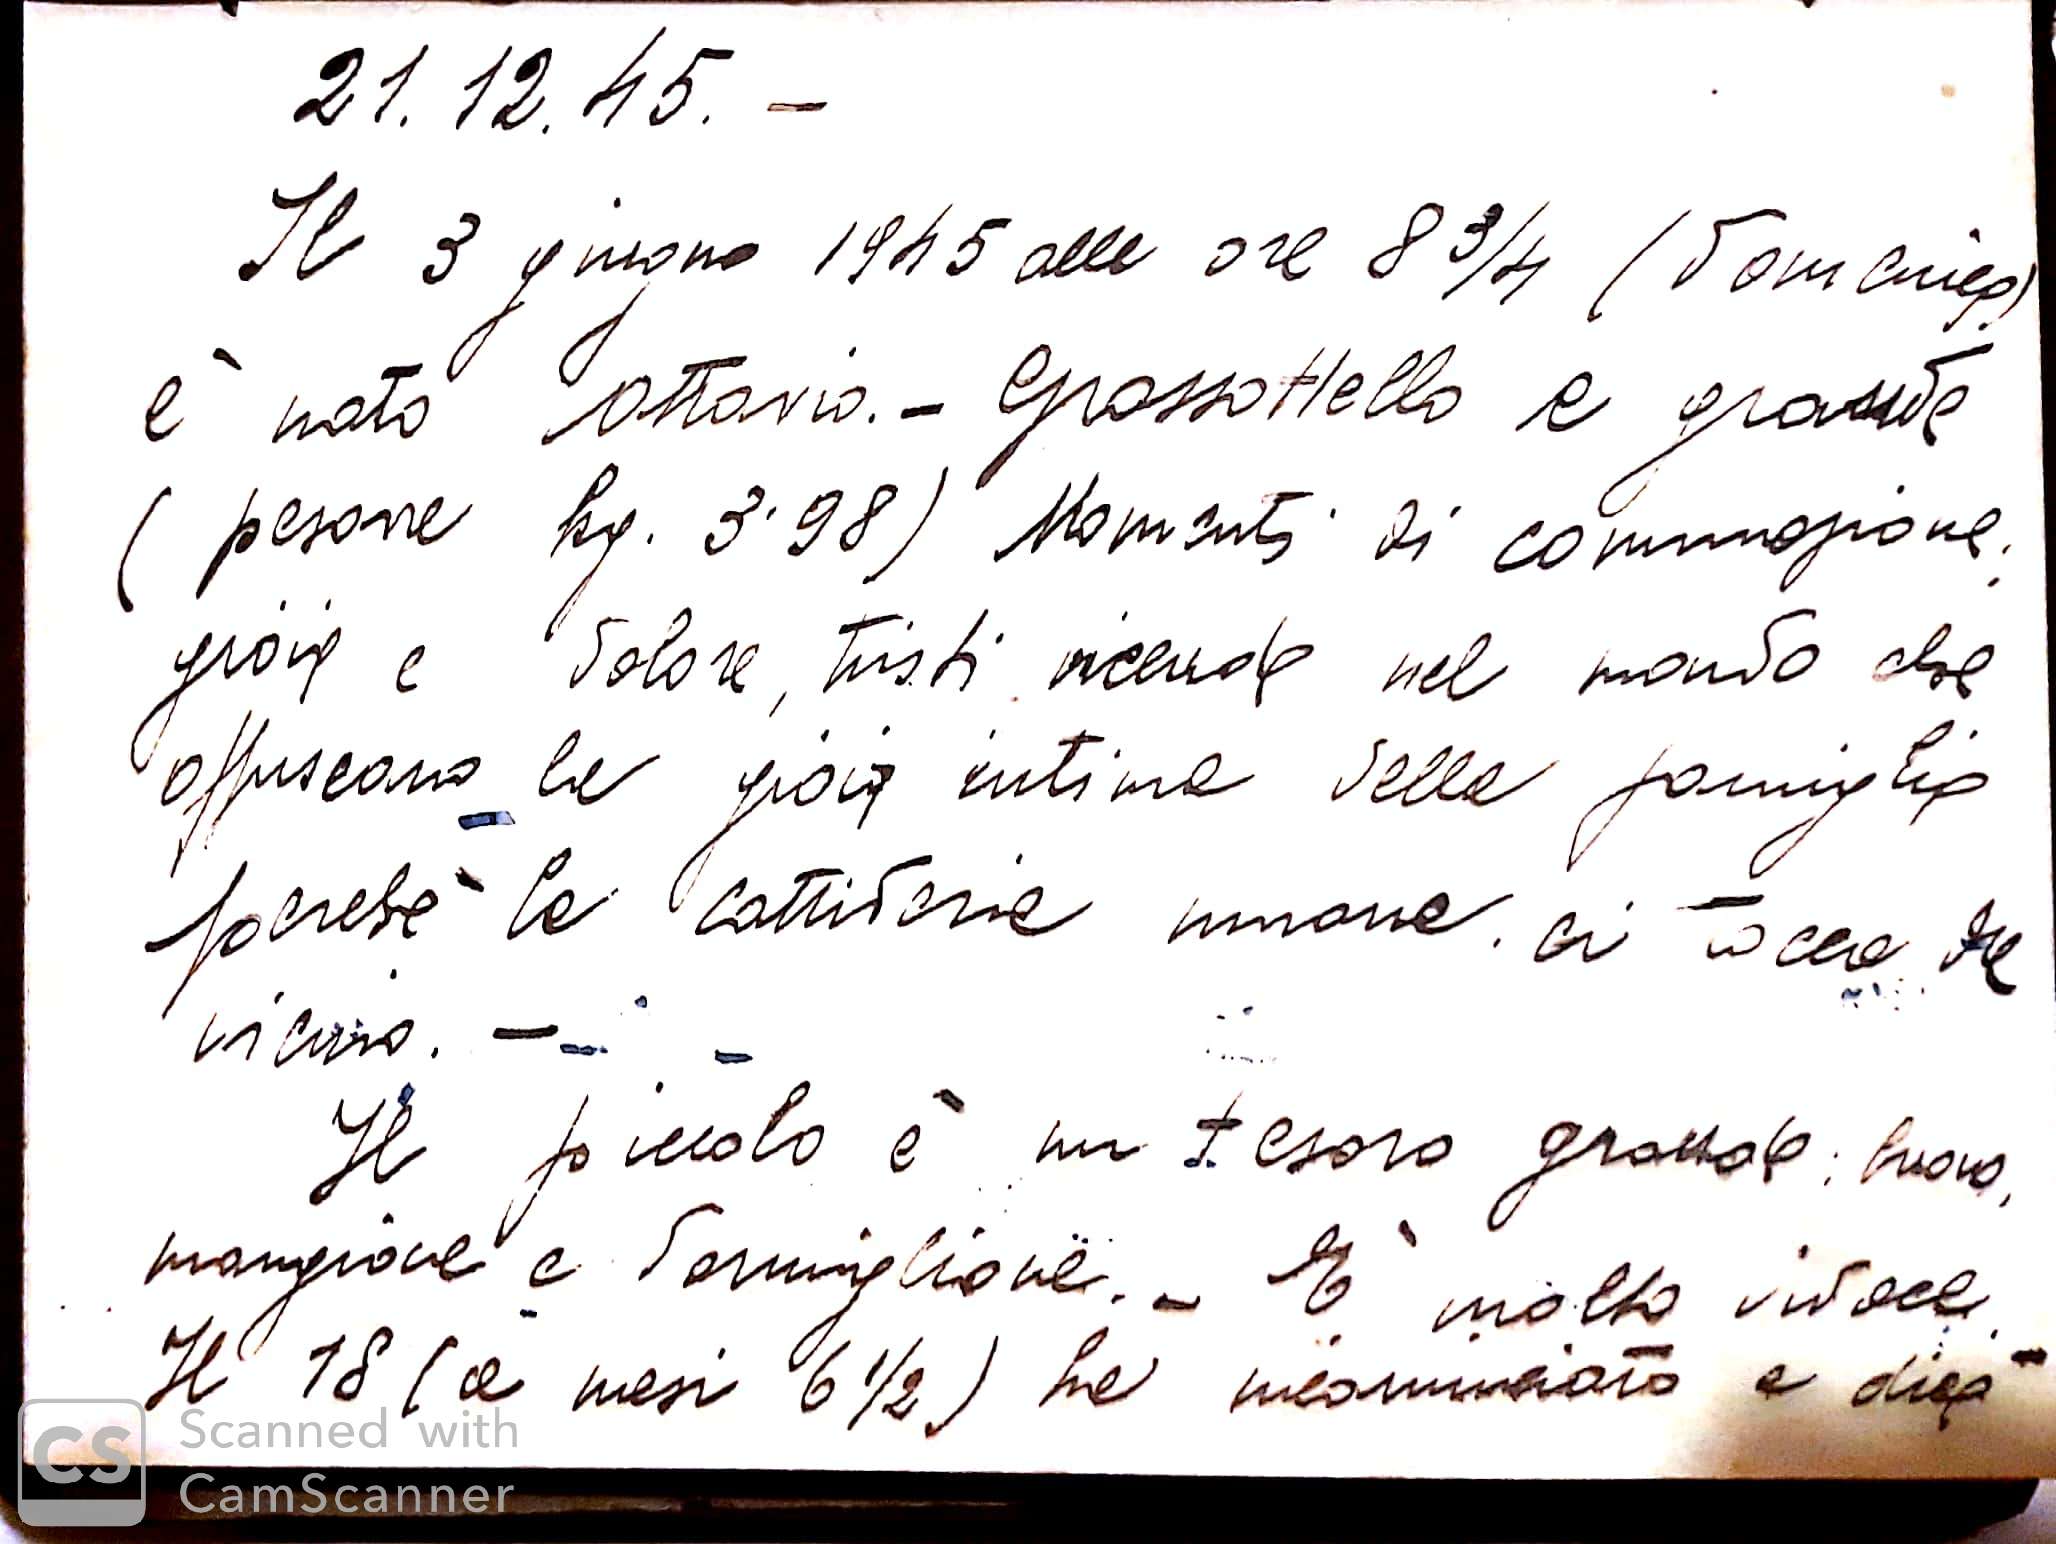 21.12.45.-
Il 3 giugno 1945 alle ore 8 3/4 (domenica)
è nato Ottavio.- Grassottello e grande
(pesava kg. 3.98) Momenti di commozione,
gioia e dolore, tristi vicende nel mondo che
offuscano le gioie intime della famiglia
perché la cattiveria umana ci tocca da
vicino.-
Il piccolo è un tesoro grande: buono,
mangione e dormiglione.- È molto vivace.
Il 18 (a mesi 6 1/2) ha incominciato a dire
Scanned with
CS CamScanner